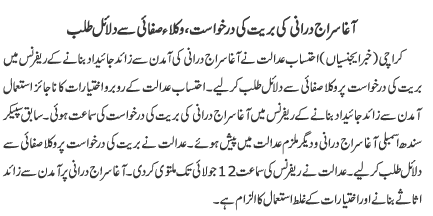 آغا سراج درانی کی بریت کی درخواست، وکلاء صفائی سے دلائل طلب
کراچی (خبر ایجنسیاں) احتساب عدالت نے آغا سراج درانی کی آمدن سے زائد جائیداد بنانے کے ریفرنس میں
بریت کی درخواست پر وکلا صفائی سے دلائل طلب کرلیے۔ احتساب عدالت کے روبرو اختیارات کا ناجائز استعمال
آمدن سے زائد جائیداد بنانے کے ریفرنس میں آغا سراج درانی کی بریت کی درخواست کی سماعت ہوئی۔ سابق سپیکر
سندھ اسمبلی آغا سراج درانی و دیگر ملزم عدالت میں پیش ہوئے۔ عدالت نے بریت کی درخواست پر وکلا صفائی سے
دلائل طلب کرلیے۔ عدالت نے ریفرنس کی سماعت 12 جولائی تک ملتوی کردی۔ آغا سراج درانی پر آمدن سے زائد
اثاثے بنانے اور اختیارات کے غلط استعمال کا الزام ہے۔